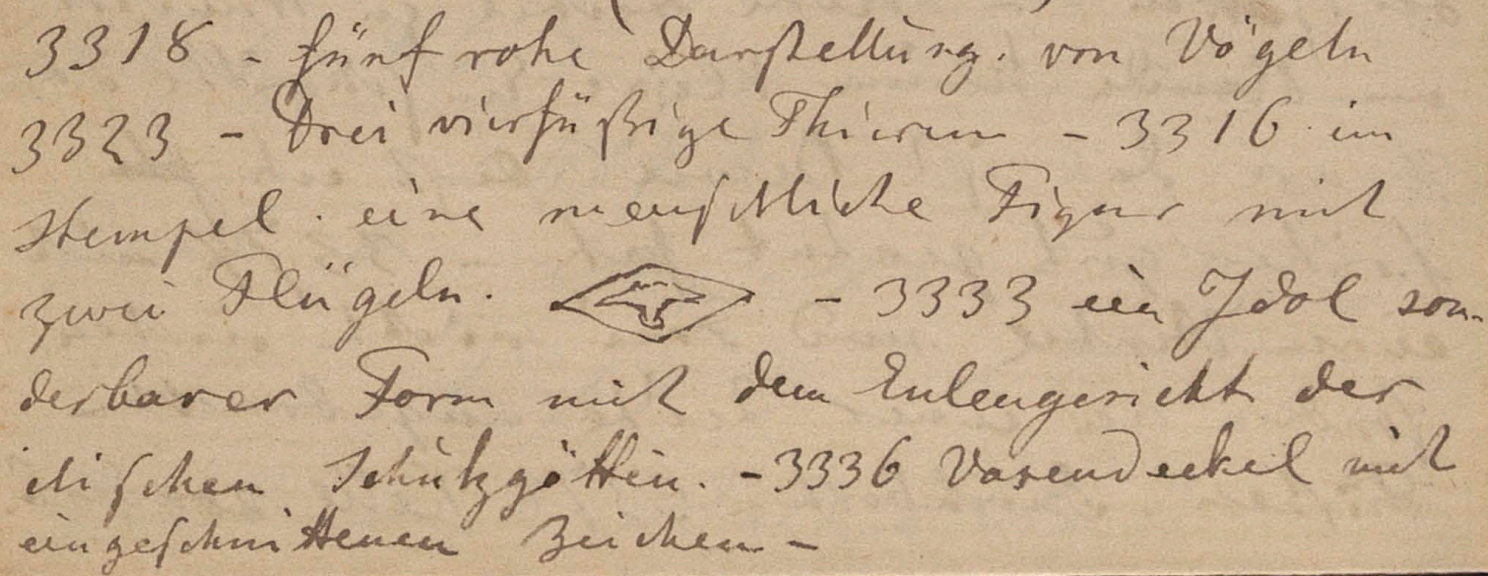 3318 - fünf rohe Darstellung. von Vögeln
3323 - Drei vierfüßige Thieren - 3316 im
Stempel. eine menschliche Figur mit
zwei Flügeln. - 3333 ein Idol son-
derbarer Form mit dem Eulengesicht der
ilischen Schutzgöttin. - 3336 Vasendeckel mit
eingeschnittenen Zeichen -